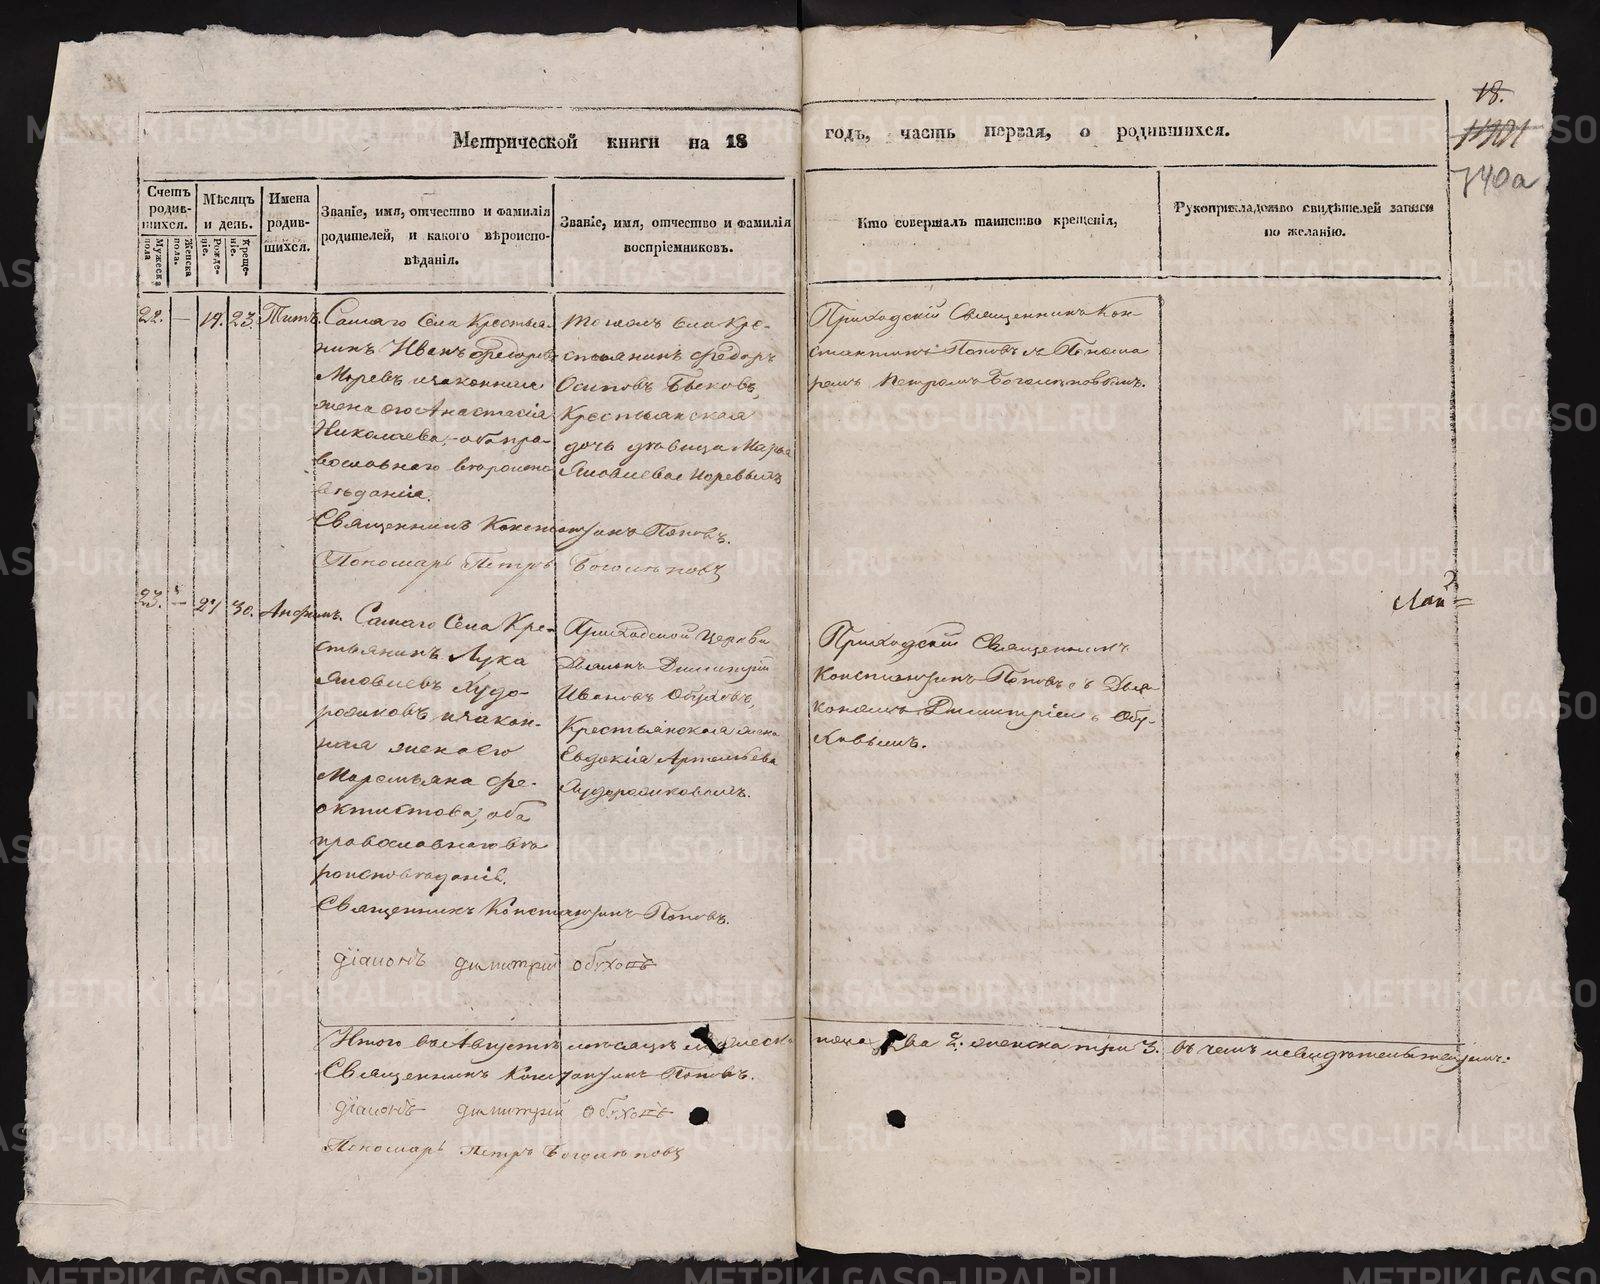 18.
740а
Метрической книги на 18 годъ, часть первая, о родившихся.
Счетъ родив-
шихся.
Мужеска пола.
Женска пола.
Мѣсяцъ
и день.
Рожде-
ніе.
Креще-
ніе.
Имена
родив-
шихся.
Званіе, имя, отчество и фамилія
родителей, и какого вѣроиспо-
вѣданія.
Званіе, имя, отчество и фамилія
воспріемниковъ.
Кто совершалъ таинство крещенія,
Рукоприкладство свидѣтелей записи
по желанію.
22. — 19. 23. Титъ.
Самаго Села Крестья-
нинъ Иванъ Федоровъ
и законная
жена его Анастасія
Николаева, оба пра-
вославнаго вѣроиспо
вѣданія.
Священникъ Константинъ Поповъ.
Пономарь Петръ Боголѣповъ
Тогожъ Села Кре-
стьянинъ Федоръ
Осиповъ Быковъ,
Крестьянская
дочь дѣвица Марья
Яковлева
Приходскій Священникъ Кон-
стантинъ Поповъ съ Понома
ремъ Петромъ Боголѣповымъ.
23. — 27 30. Анфимъ.
Самаго Села Кре-
стьянинъ Лука
Яковлевъ Худо-
рожковъ и закон-
ная жена его
Маремьяна Фе-
октистова, оба
православнаго вѣ
роисповѣданія.
Священникъ Константинъ Поповъ.
діаконъ димитрій обуховъ
Приходской Церкви
Діаконъ Димитрій
Ивановъ Обуховъ,
Крестьянская жена
Евдокія Артемьева
Худорожковыхъ.
Приходскій Священникъ
Константинъ Поповъ съ Діа
кономъ Димитріемъ Обу-
ховымъ.
Итого въ Августѣ мѣсяцѣ мужеска пола два 2. женска три 3. въ чемъ и свидѣтельствуемъ:
Священникъ Константинъ Поповъ.
діаконъ димитрій обуховъ
Пономарь Петръ Боголѣповъ
METRIKI.GASO-URAL.RU